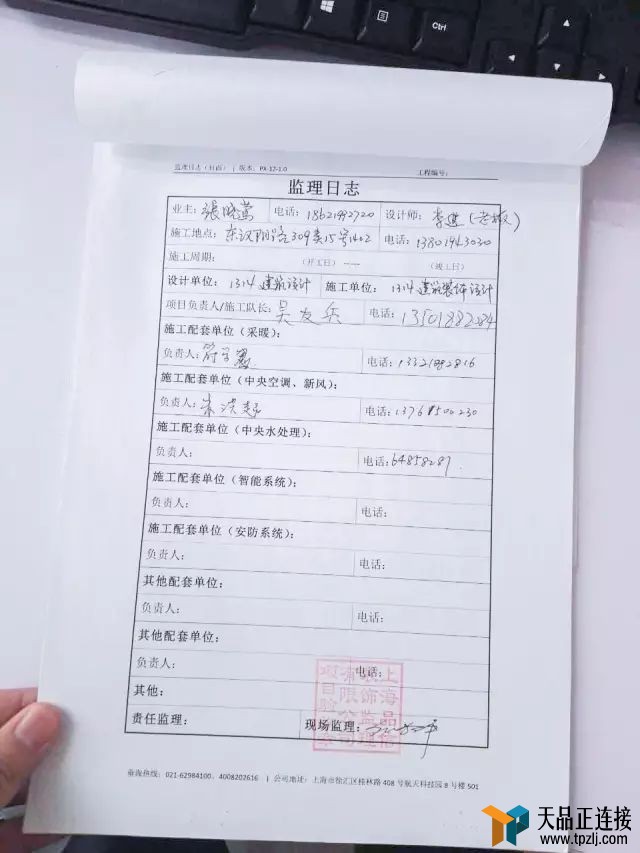 Ctrl
监理日志（封面） | 版本：PX-12-1.0 工程编号：
监理日志
业主：張晓莺 电话：18621992720 设计师：李进（老板）
施工地点：东汉阳路309弄15号1402 电话：13801943030
施工周期： （开工日） —— （竣工日）
设计单位：1314建筑设计 施工单位：1314建筑装饰设计
项目负责人/施工队长：吴友兵 电话：13501882284
施工配套单位（采暖）：
负责人： 电话：13321992816
施工配套单位（中央空调、新风）：
负责人：朱洪 电话：13761500230
施工配套单位（中央水处理）：
负责人： 电话：64858287
施工配套单位（智能系统）：
负责人： 电话：
施工配套单位（安防系统）：
负责人： 电话：
其他配套单位：
负责人： 电话：
其他配套单位：
负责人： 电话：
其他：
责任监理： 现场监理：
咨询热线：021-62984100、4008202616 | 公司地址：上海市徐汇区桂林路 408 号航天科技园 8 号楼 501
天品正连接
www.tpzlj.com